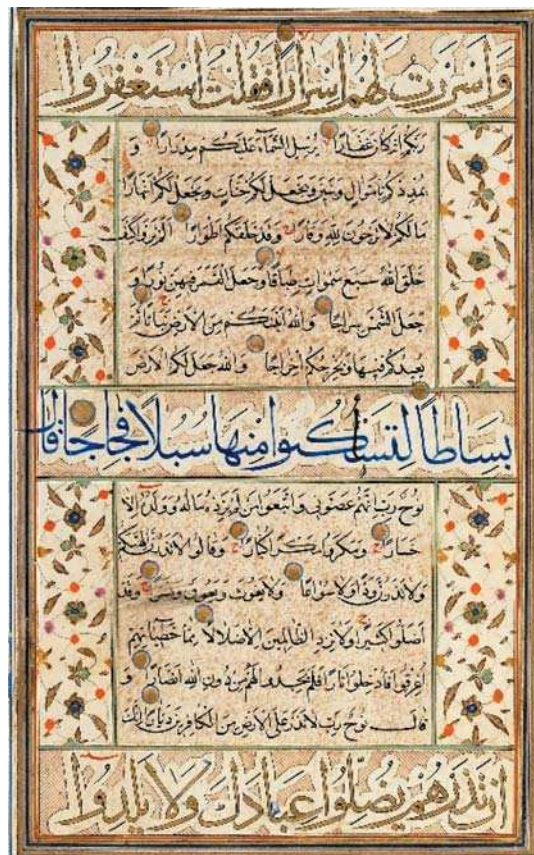 وَاَسْرَرْتُ لَهُمْ اِسْرَارًا فَقُلْتُ اسْتَغْفِرُوا
رَبَّكُمْ اِنَّهُ كَانَ غَفَّارًا يُرْسِلِ السَّمَآءَ عَلَيْكُمْ مِدْرَارًا وَ
يُمْدِدْكُمْ بِاَمْوَالٍ وَبَنِينَ وَيَجْعَلْ لَكُمْ جَنَّاتٍ وَيَجْعَلْ لَكُمْ اَنْهَارًا
مَا لَكُمْ لَا تَرْجُونَ لِلّٰهِ وَقَارًا وَقَدْ خَلَقَكُمْ اَطْوَارًا اَلَمْ تَرَوْا كَيْفَ
خَلَقَ اللّٰهُ سَبْعَ سَمٰوَاتٍ طِبَاقًا وَجَعَلَ الْقَمَرَ فِيهِنَّ نُورًا وَ
جَعَلَ الشَّمْسَ سِرَاجًا وَاللّٰهُ اَنْبَتَكُمْ مِنَ الْاَرْضِ نَبَاتًا ثُمَّ
يُعِيدُكُمْ فِيهَا وَيُخْرِجُكُمْ اِخْرَاجًا وَاللّٰهُ جَعَلَ لَكُمُ الْاَرْضَ
بِسَاطًا لِتَسْلُكُوا مِنْهَا سُبُلًا فِجَاجًا قَالَ
نُوحٌ رَبِّ اِنَّهُمْ عَصَوْنِي وَاتَّبَعُوا مَنْ لَمْ يَزِدْهُ مَالُهُ وَوَلَدُهُ اِلَّا
خَسَارًا وَمَكَرُوا مَكْرًا كُبَّارًا وَقَالُوا لَا تَذَرُنَّ اٰلِهَتَكُمْ
وَلَا تَذَرُنَّ وَدًّا وَلَا سُوَاعًا وَلَا يَغُوثَ وَيَعُوقَ وَنَسْرًا وَقَدْ
اَضَلُّوا كَثِيرًا وَلَا تَزِدِ الظَّالِمِينَ اِلَّا ضَلَالًا مِمَّا خَطِيئَاتِهِمْ
اُغْرِقُوا فَاُدْخِلُوا نَارًا فَلَمْ يَجِدُوا لَهُمْ مِنْ دُونِ اللّٰهِ اَنْصَارًا وَ
قَالَ نُوحٌ رَبِّ لَا تَذَرْ عَلَى الْاَرْضِ مِنَ الْكَافِرِينَ دَيَّارًا اِنَّكَ
اِنْ تَذَرْهُمْ يُضِلُّوا عِبَادَكَ وَلَا يَلِدُوا